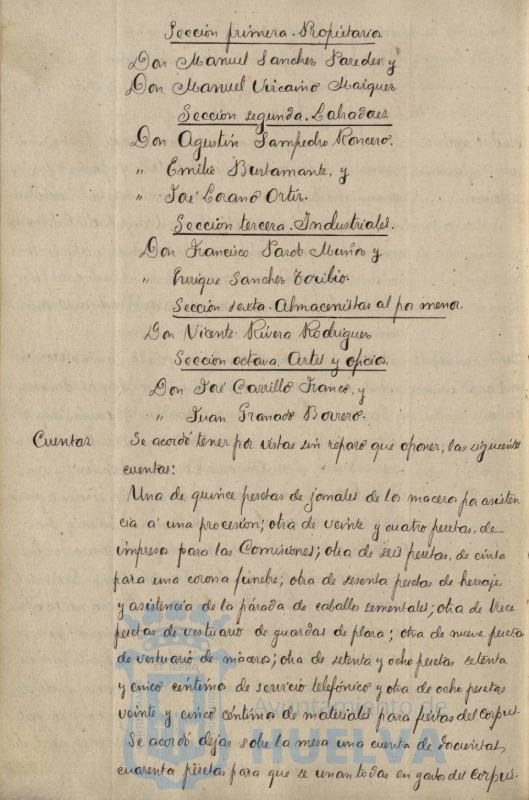 Sección primera. Propietarios
Don Manuel Sanchez Paredes y
Don Manuel Vizcaino Marquez
Sección segunda. Labradores.
Don Agustín Sampedro Roncero.
" Emilio Bustamante, y
" José Lozano Ortiz.
Sección tercera. Industriales.
Don Francisco Muñoz y
" Enrique Sanchez Toribio.
Sección sexta. Almacenistas al por menor.
Don Vicente Rivera Rodriguez
Sección octava. Artes y oficios.
Don José Carrillo Franco, y
" Juan Granado Borrero.
Cuentas. Se acordó tener por vistas sin reparo que oponer, las siguientes
cuentas:
Una de quince pesetas de jornales de los maceros por asisten
cia á una procesion; otra de veinte y cuatro pesetas, de
impresos para las Comisiones; otra de seis pesetas, de cinta
para una corona fúnebre; otra de sesenta pesetas de herraje
y asistencia de la párada de caballos sementales; otra de trece
pesetas de vestuario de guardas de plaza; otra de nueve pesetas
de vestuario de maceros; otra de setenta y ocho pesetas setenta
y cinco céntimos de servicio telefónico y otra de ocho pesetas
veinte y cinco céntimos de materiales para fiestas del Corpus.
Se acordó dejar sobre la mesa una cuenta de doscientas
cuarenta pesetas para que se unan todas en gastos del Corpus.
Ayuntamiento de
HUELVA